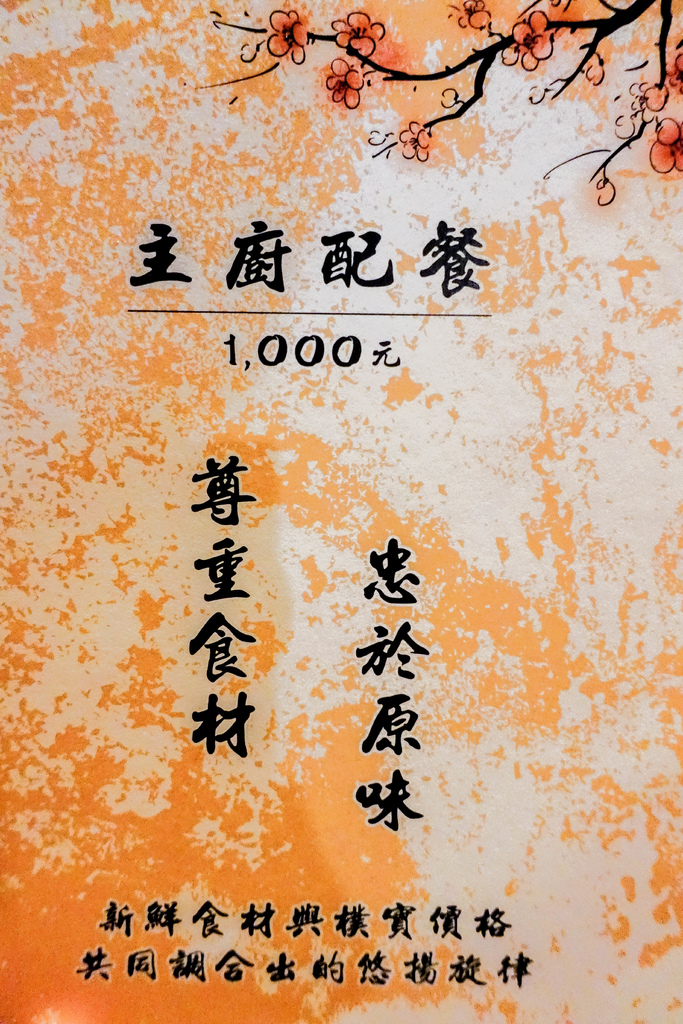 主廚配餐
1,000元
忠於原味
尊重食材
新鮮食材與樸實價格
共同調合出的悠揚旋律